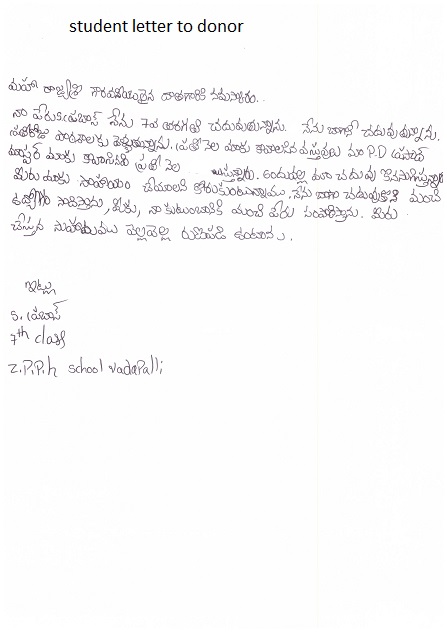 student letter to donor
మహా రాజశ్రీ గౌరవనీయులైన దాతగారికి నమస్కారం.
నా పేరు S.ప్రభాస్ నేను 7వ తరగతి చదువుతున్నాను. నేను బాగా చదువుతున్నాను.
ప్రతిరోజు పాఠశాలకు వెళ్తున్నాను. ప్రతి నెల మాకు కావలసిన వస్తువులు మా P.D ప్రసాద్
మాస్టర్ మాకు కావాలసినవి ప్రతి నెల ఇస్తున్నారు. అందువల్ల మా చదువు కొనసాగిస్తున్నాము
మీరు మాకు సాహాయం చేయాలని కోరుకుంటున్నాము. నేను బాగా చదువుకొని మంచి
ఉద్యోగం సాదిస్తాను, మీకు, నా కుటుంబానికి మంచి పేరు సంపాదిస్తాను. మీరు
చేస్తున్న సహాయమునకు ఎల్లవేళల రుణపడి ఉంటాను.
ఇట్లు
S. ప్రభాస్
7th class
Z.P.P.h school vadapalli